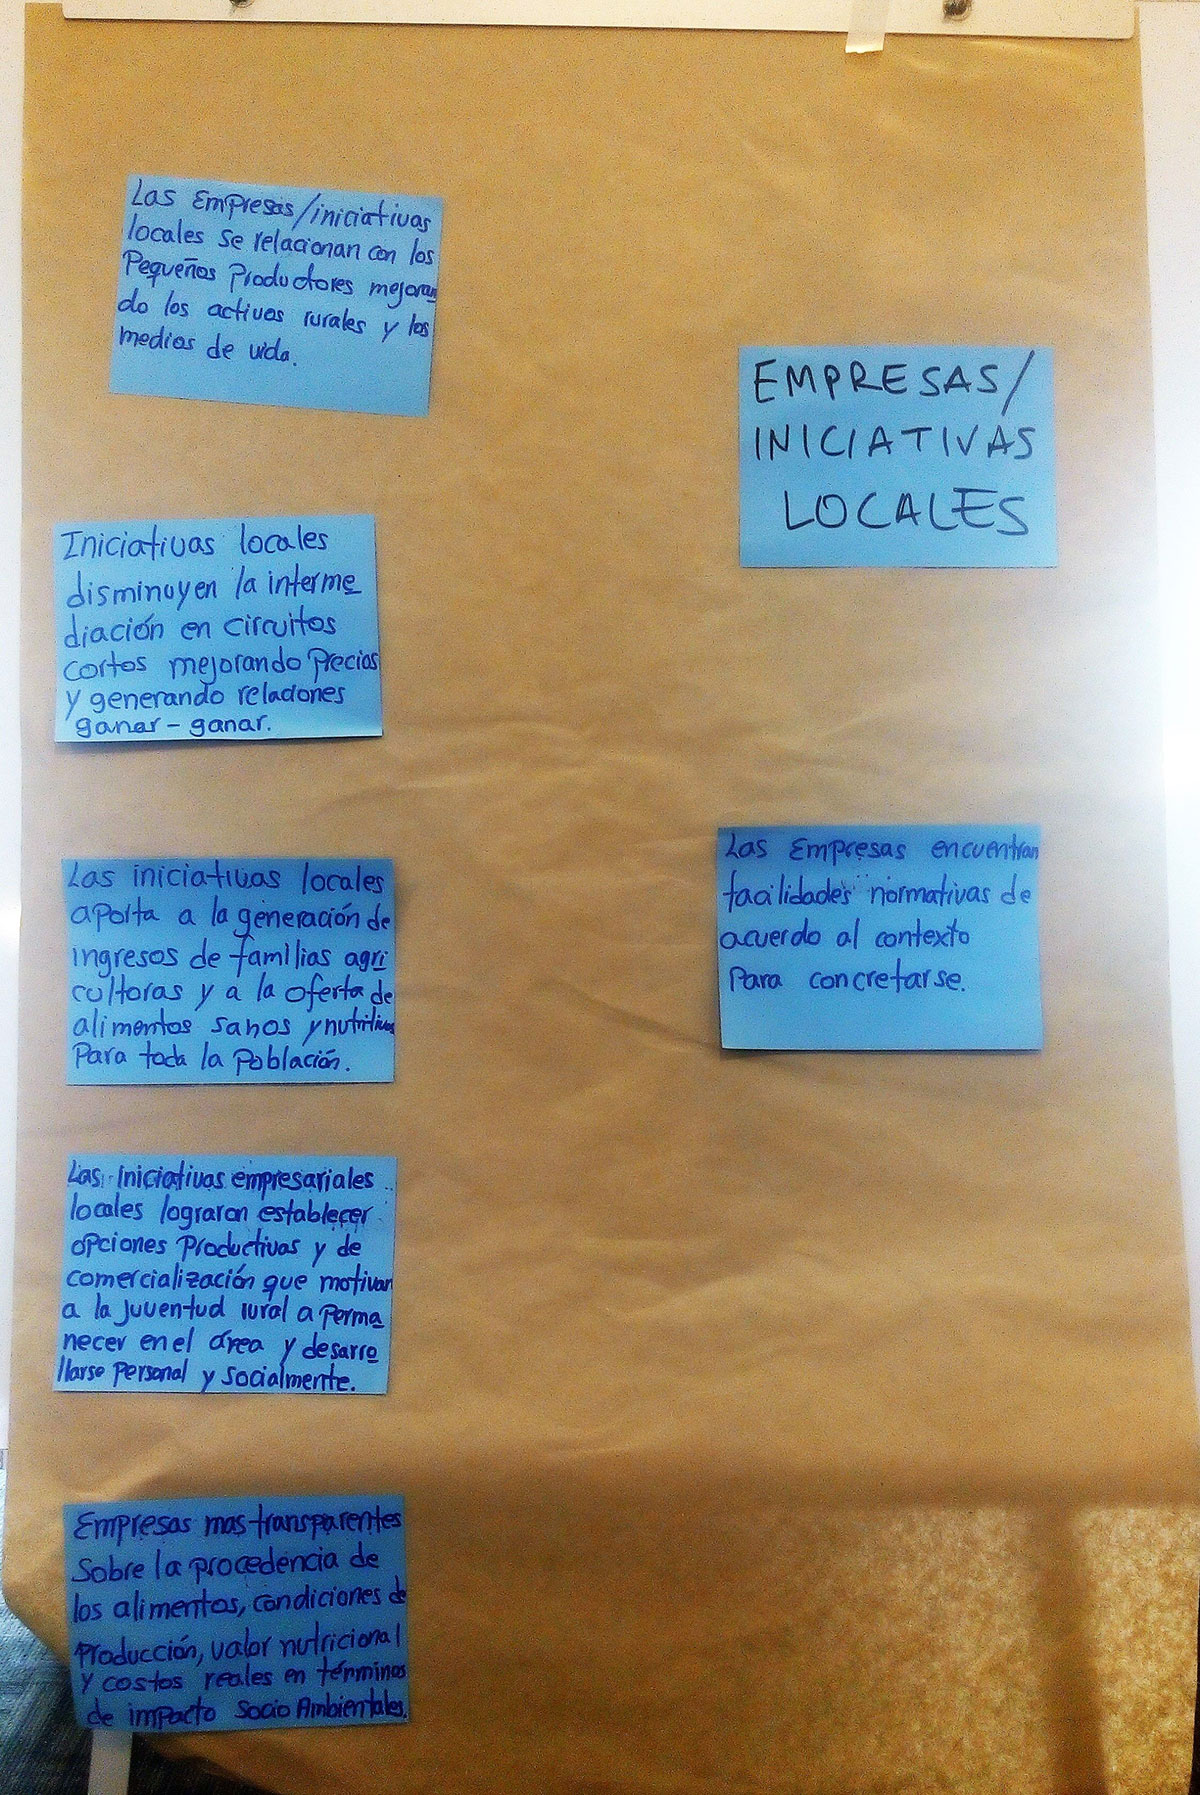 Las Empresas/iniciativas
locales se relacionan con los
Pequeños Productores mejoran
do los activos rurales y los
medios de vida.
Iniciativas locales
disminuyen la interme
diación en circuitos
cortos mejorando Precios
y generando relaciones
ganar - ganar.
Las iniciativas locales
aporta a la generación de
ingresos de familias agri
cultoras y a la oferta de
alimentos sanos y nutritivos
Para toda la Población.
Las iniciativas empresariales
locales lograron establecer
opciones Productivas y de
comercialización que motivan
a la juventud rural a Perma
necer en el área y desarro
llarse Personal y socialmente.
Empresas mas transparentes
Sobre la procedencia de
los alimentos, condiciones de
Producción, valor nutricional
y costos reales en términos
de impacto Socio Ambientales.
EMPRESAS/
INICIATIVAS
LOCALES
Las Empresas encuentran
facilidades normativas de
acuerdo al contexto
Para concretarse.